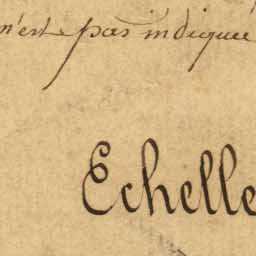 n'est pas indiquée
Echelle